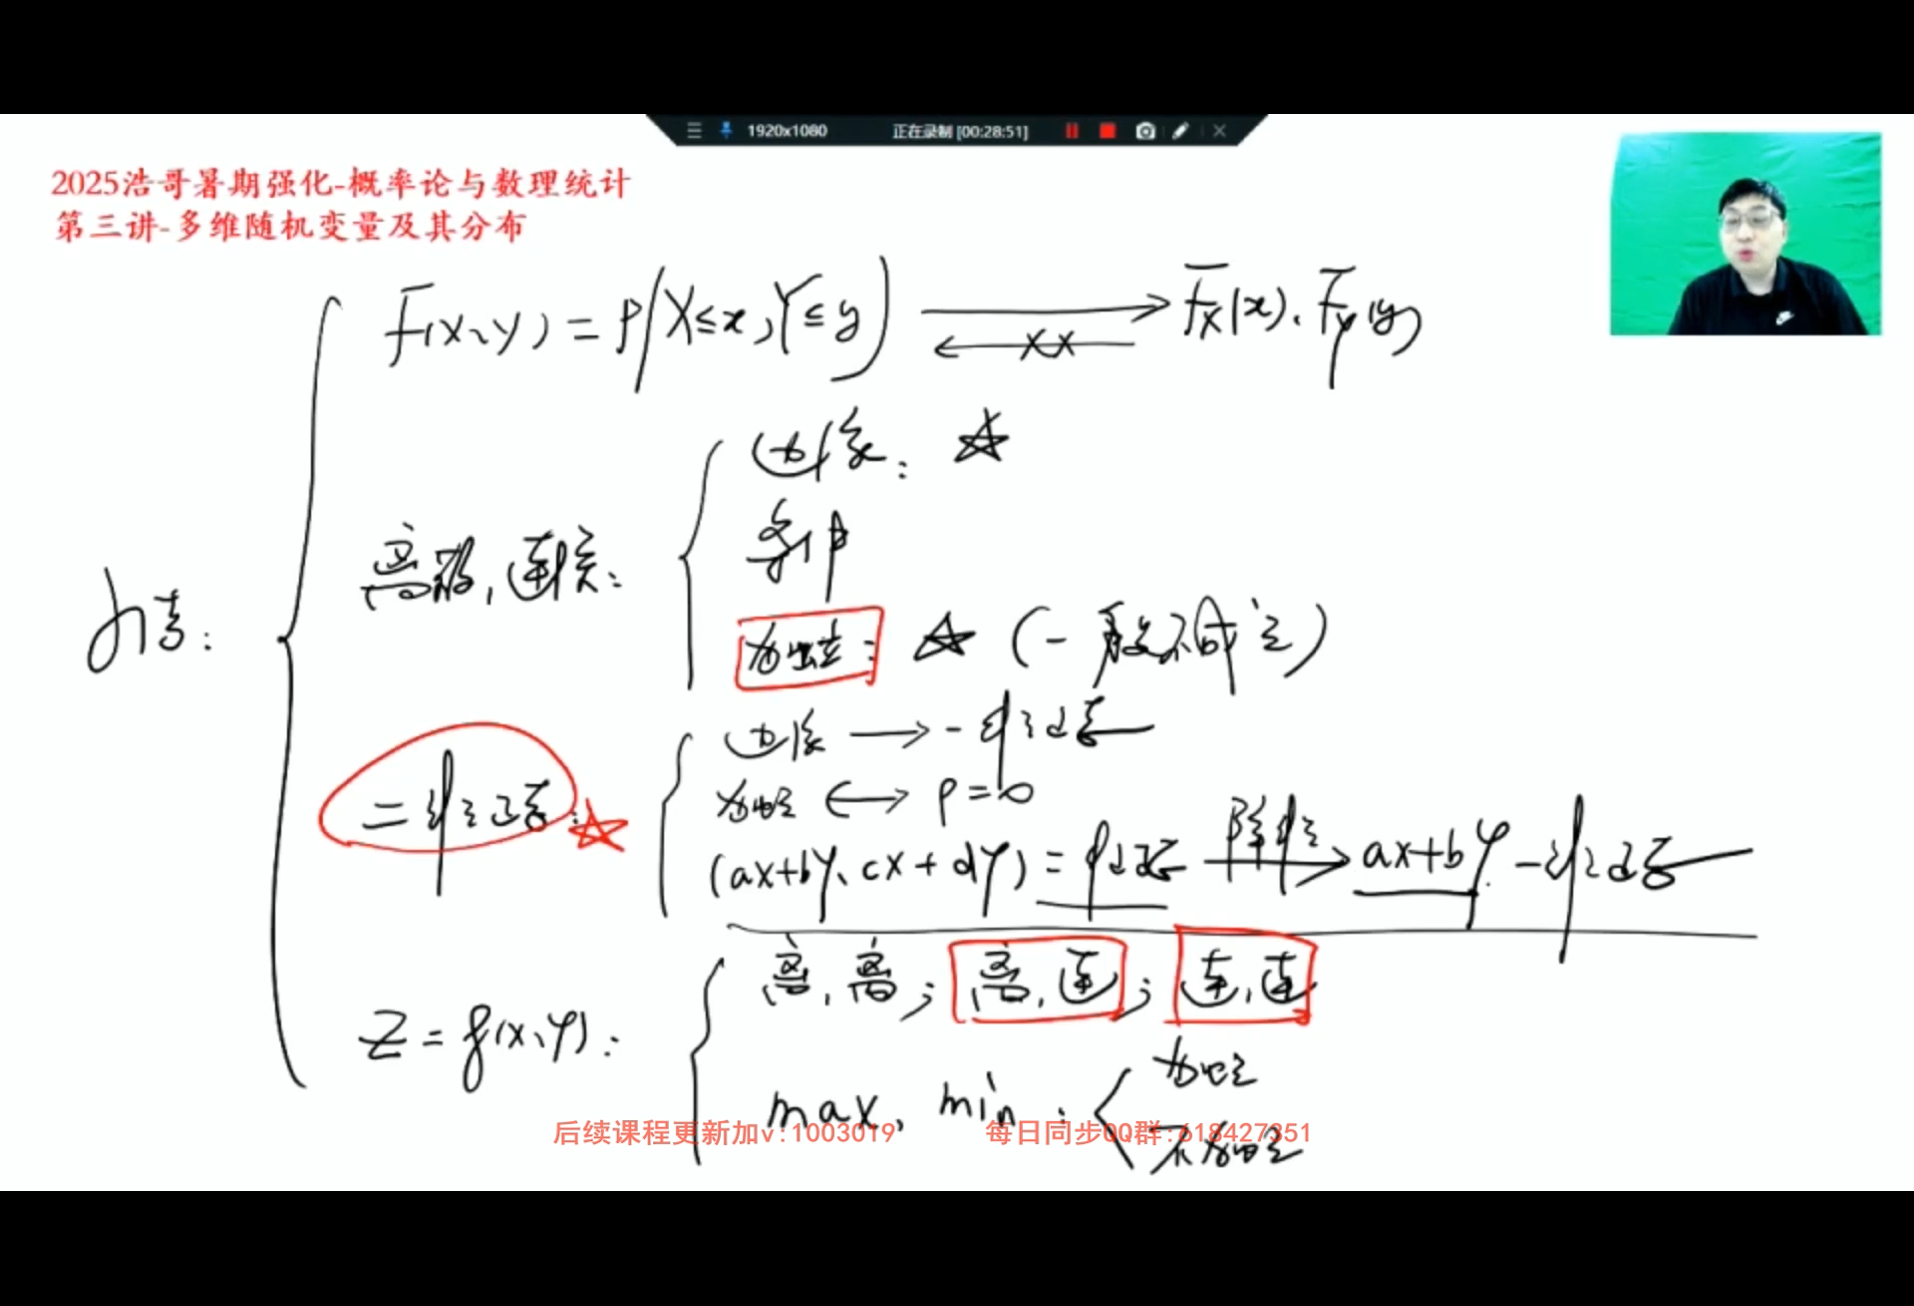 1920x1080 正在录制 [00:28:51]
2025浩哥暑期强化-概率论与数理统计
第三讲-多维随机变量及其分布
F(x,y) = P(X≤x,Y≤y) ⟶ F_X(x). F_Y(y)
⟵ xx
边缘: ☆
条件
离散,连续:
小结:
独立: ☆ (一般不成立)
边缘 ⟶ 一维正态
二维正态: ☆
独立 ⟷ ρ=0
(ax+by, cx+dy) = 维正态 降维⟶ ax+by 一维正态
离,离; 离,连; 连,连
Z = f(x,y):
独立
max, min:
不独立
后续课程更新加v:1003019 每日同步QQ群:618427351